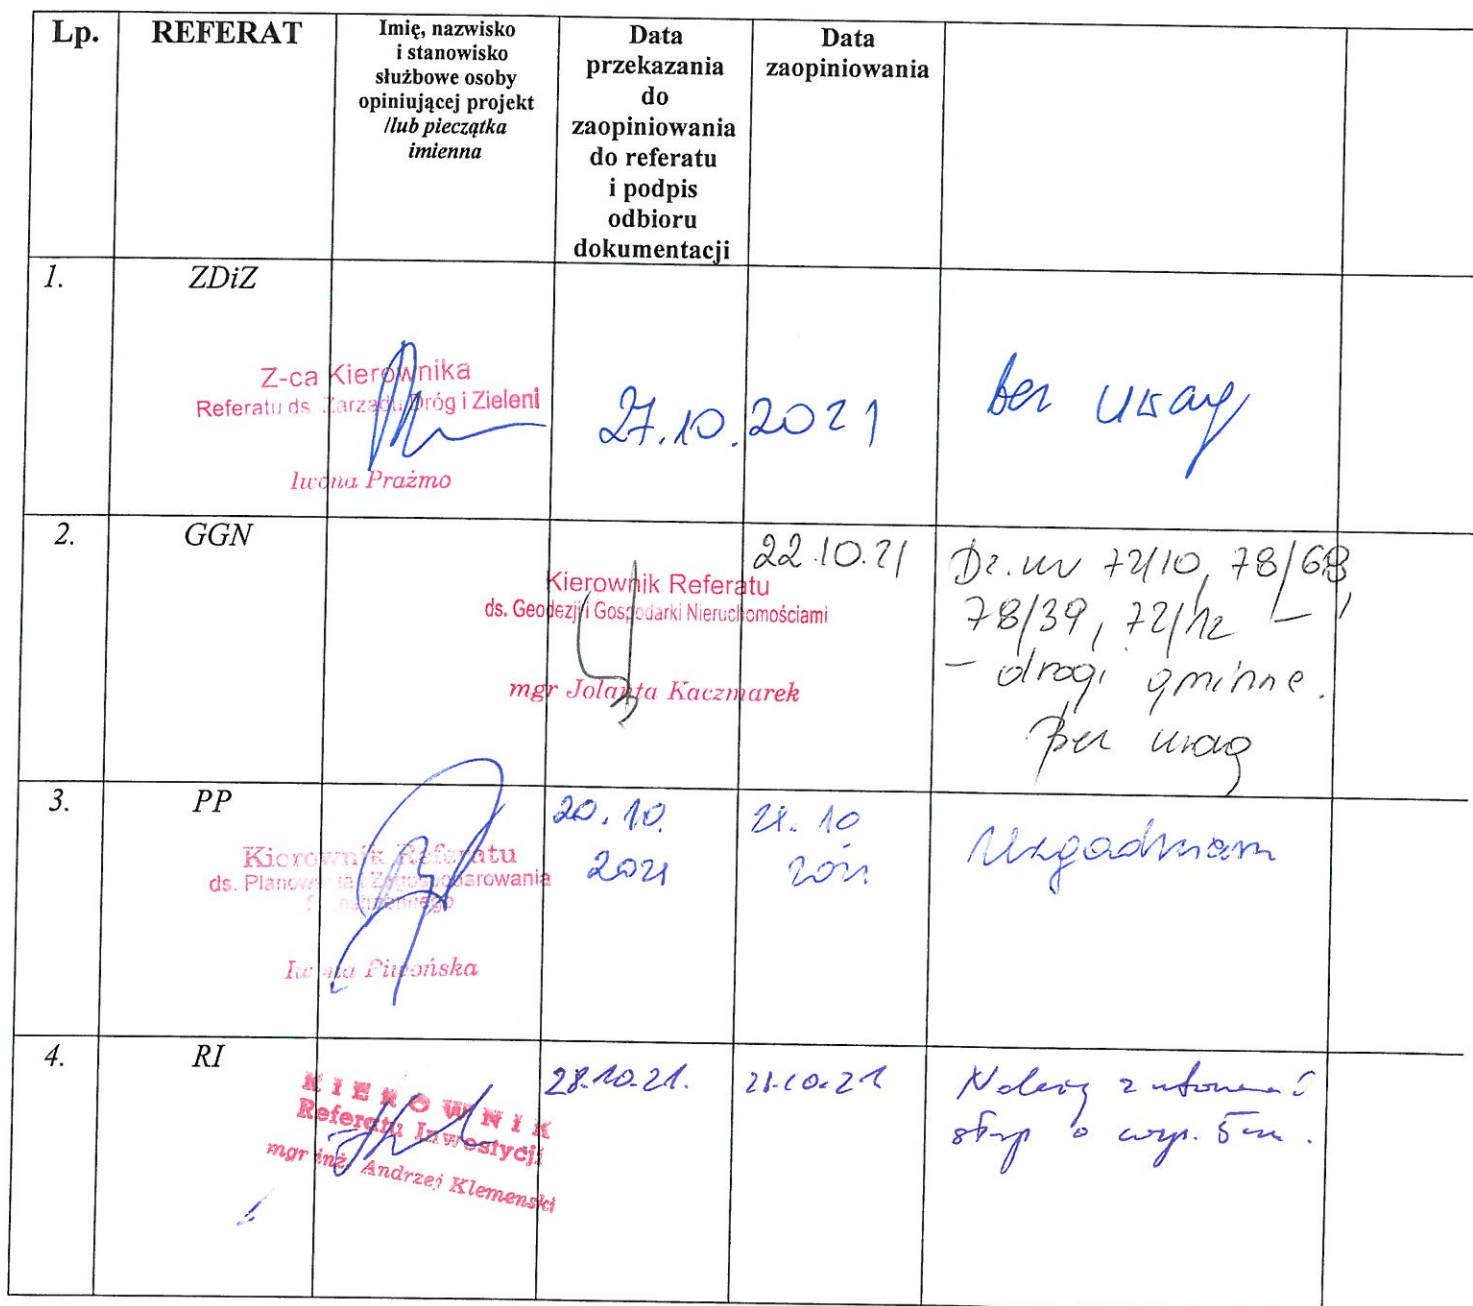 Lp.
REFERAT
Imię, nazwisko
i stanowisko
służbowe osoby
opiniującej projekt
/lub pieczątka
imienna
Data
przekazania
do
zaopiniowania
do referatu
i podpis
odbioru
dokumentacji
Data
zaopiniowania
1.
ZDiZ
Z-ca Kierownika
Referatu ds. Zarządu Dróg i Zieleni
Iwona Prażmo
27.10.2021
bez uwag
2.
GGN
Kierownik Referatu
ds. Geodezji i Gospodarki Nieruchomościami
mgr Jolanta Kaczmarek
22.10.21
Dz. nr 72/10, 78/68,
78/39, 72/12
- drogi gminne.
Bez uwag
3.
PP
Kierownik Referatu
ds. Planowania i Zagospodarowania
Przestrzennego
Iwona Piwońska
20.10.
2021
21.10
2021
Uzgadniam
4.
RI
KIEROWNIK
Referatu Inwestycji
mgr inż. Andrzej Klemenski
28.10.21.
28.10.21
Należy
słup o wys. 5m.